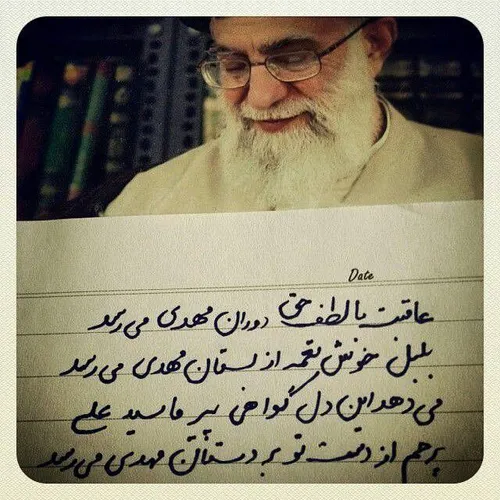 Date
عاقبت با لطف حق دوران مهدی می رسد
بلبل خوش نغمه از بستان مهدی می رسد
می دهد این دل گواهی پیر ما سید علی
پرچم از دست تو بر دستان مهدی می رسد